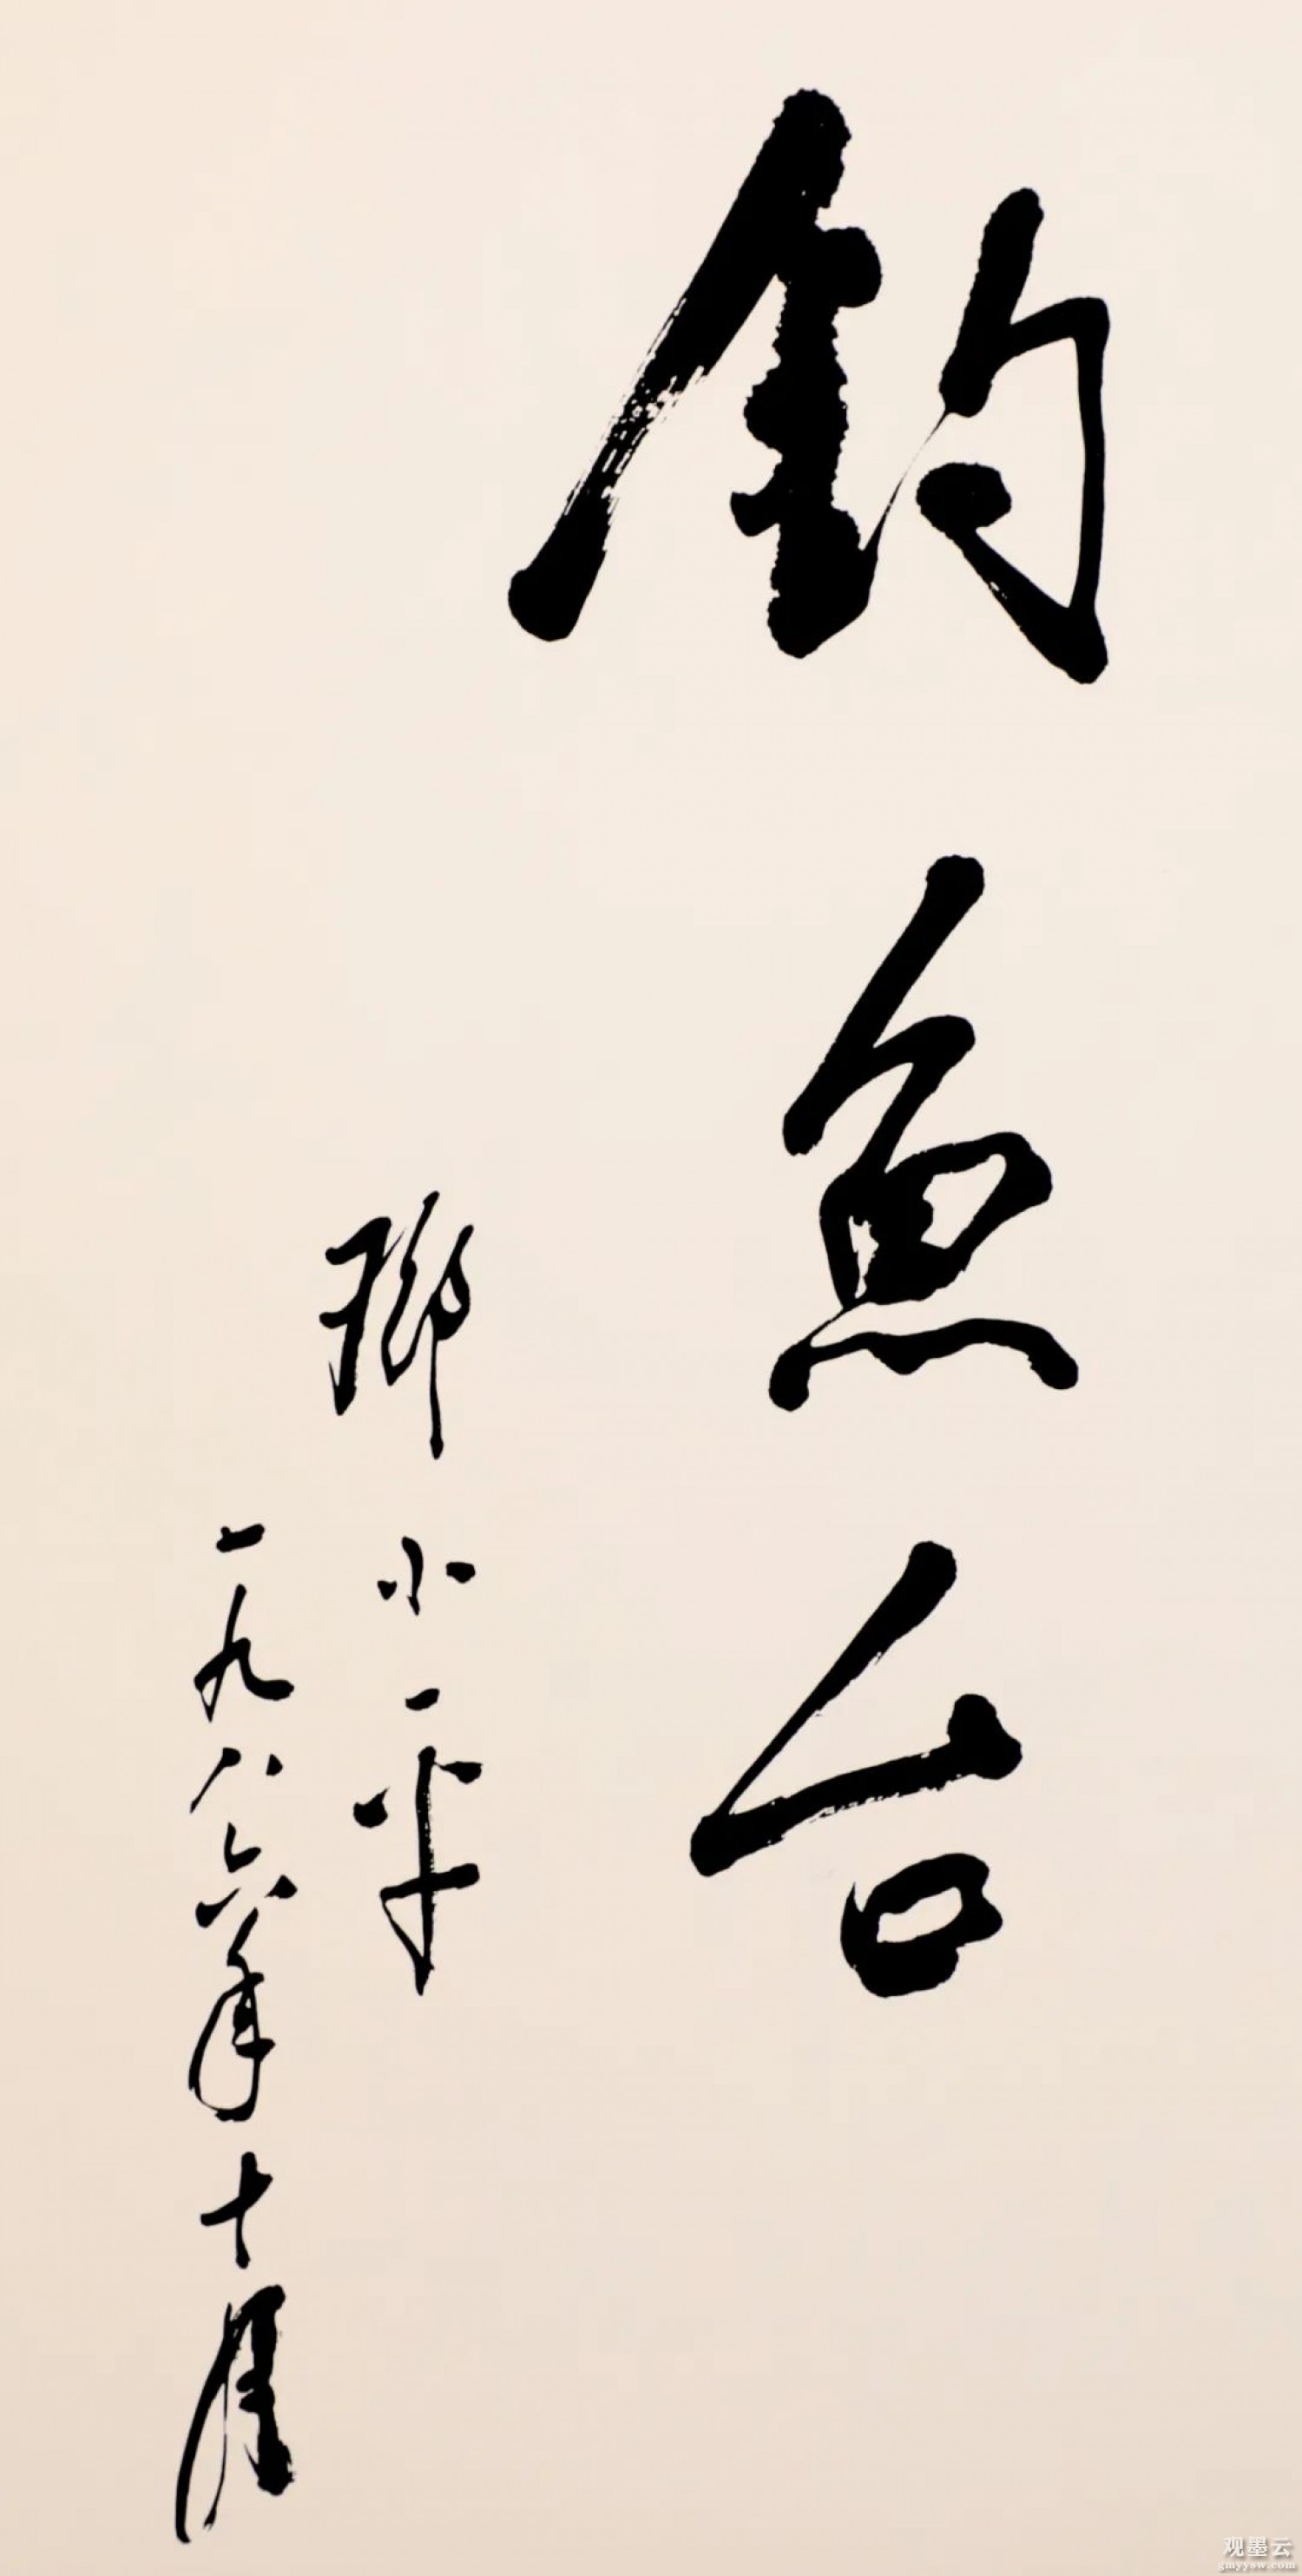 钓鱼台
邓小平
一九八六年十月
观墨云
gmyysw.com